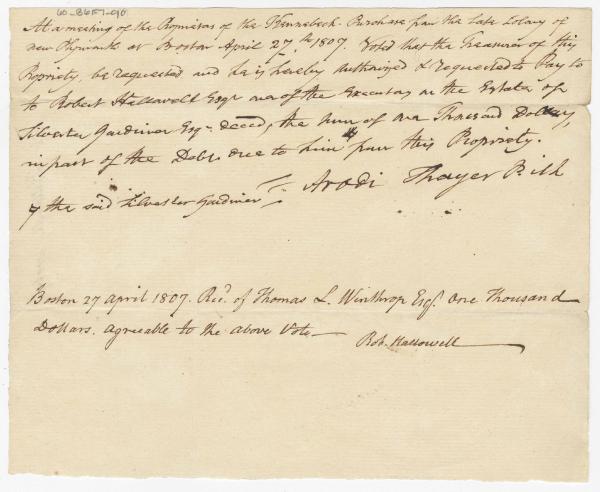 60-8657-90
At a meeting of the Proprietors of the Kennebeck Purchase from the Late Colony of
new Plymouth at Boston April 27th 1807. Voted that the Treasurer of this
Propriety, be requested and he is hereby Authorized & requested to Pay to
to Robert Hallowell Esqr one of the Executors on the Estate of
Silvester Gardiner Esqr deced, the sum of one Thousand Dollars,
in part of the Debt due to him from this Propriety.
Arodi Thayer P. Clk
y the said Silvester Gardiner
Boston 27 april 1807. Recd. of Thomas L. Winthrop Esqr. One Thousand
Dollars. agreeable to the above Vote
Rob. Hallowell